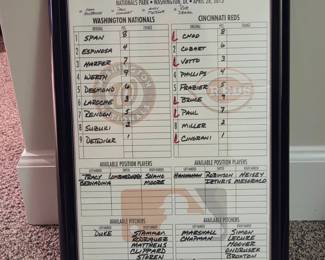 NATIONALS PARK • WASHINGTON, DC • APRIL 28, 2013
WASHINGTON NATIONALS CINCINNATI REDS
1 SPAN 8 L CHOO 8
2 ESPINOSA 4 COZART 6
3 HARPER 7 L VOTTO 3
4 WERTH 9 PHILLIPS 4
5 DESMOND 6 FRAZIER 5
6 LAROCHE 3 L BRUCE 9
7 RENDON L PAUL 7
8 SUZUKI 2 MILLER 2
9 DETWILER 1 L CINGRANI 1
AVAILABLE POSITION PLAYERS AVAILABLE POSITION PLAYERS
TRACY LOMBARDOZZI SOLANO HANNAHAN ROBINSON HEISEY
BERNADINA MOORE IZTURIS MESORACO
AVAILABLE PITCHERS AVAILABLE PITCHERS
DUKE STAMMEN MARSHALL SIMON
STORER CHAPMAN LECURE
MATTHEUS HOOVER
CLIPPARD ONDRUSEK
STOREN BROXTON